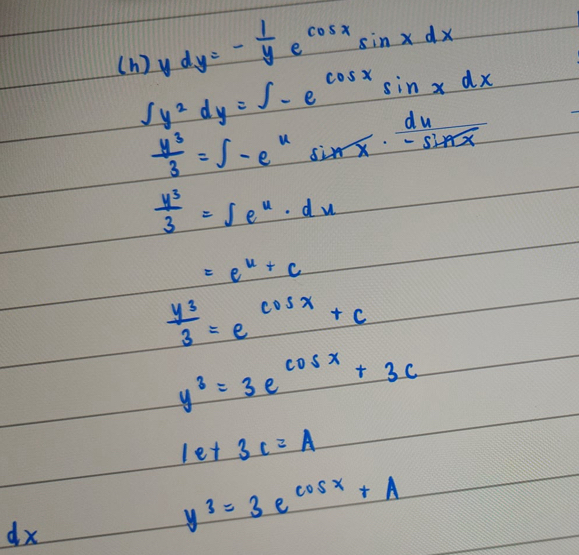 (h) y dy = - 1/y e^cosx sin x dx
∫y² dy = ∫ - e^cosx sin x dx
y³/3 = ∫ - e^u sin x · du/- sinx
y³/3 = ∫ e^u · du
= e^u + c
y³/3 = e^cosx + c
y³ = 3e^cosx + 3c
let 3c = A
y³ = 3e^cosx + A
dx